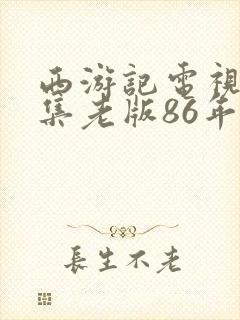 西游記電視
集老版86年
長生不老